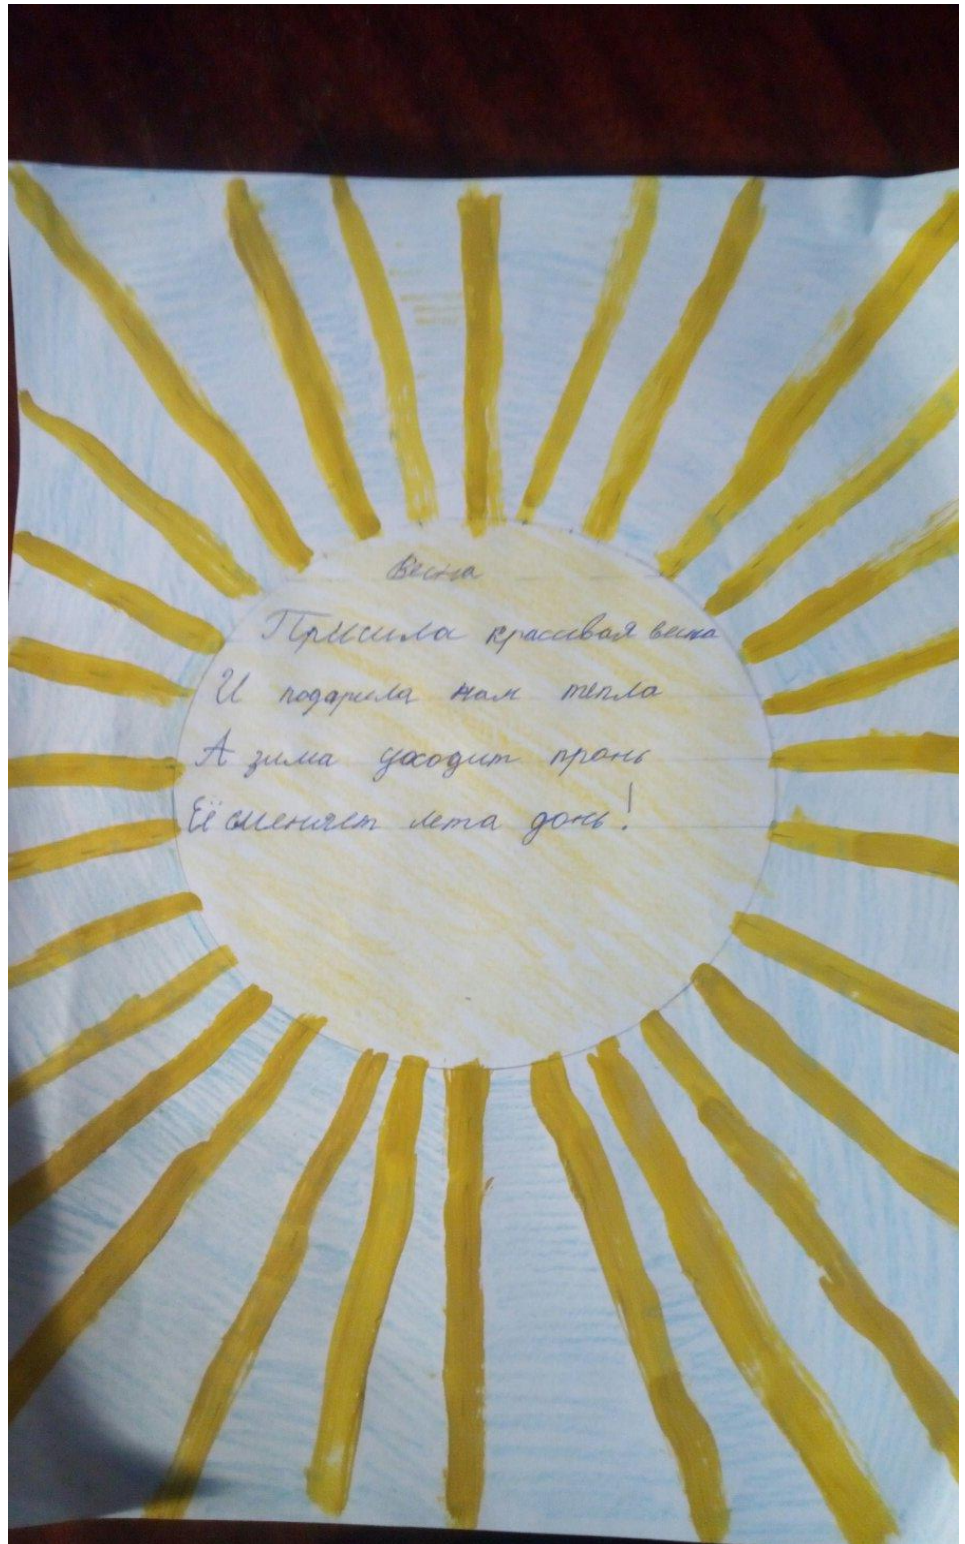 Весна
Пришла красивая весна
И подарила нам тепла
А зима уходит прочь
Её сменяет лета дочь!